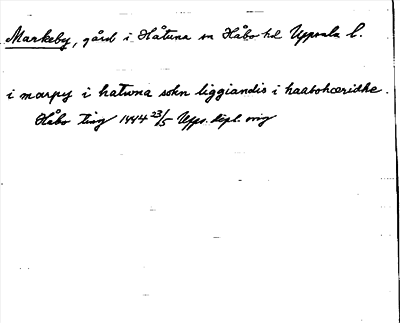 Markeby, gård i Håtuna sn Håbo hd Uppsala l.
i marpy i hatuna sokn liggiandis i haabohæridhe.
Håbo ting 1444 23/5 Upps. depl. orig